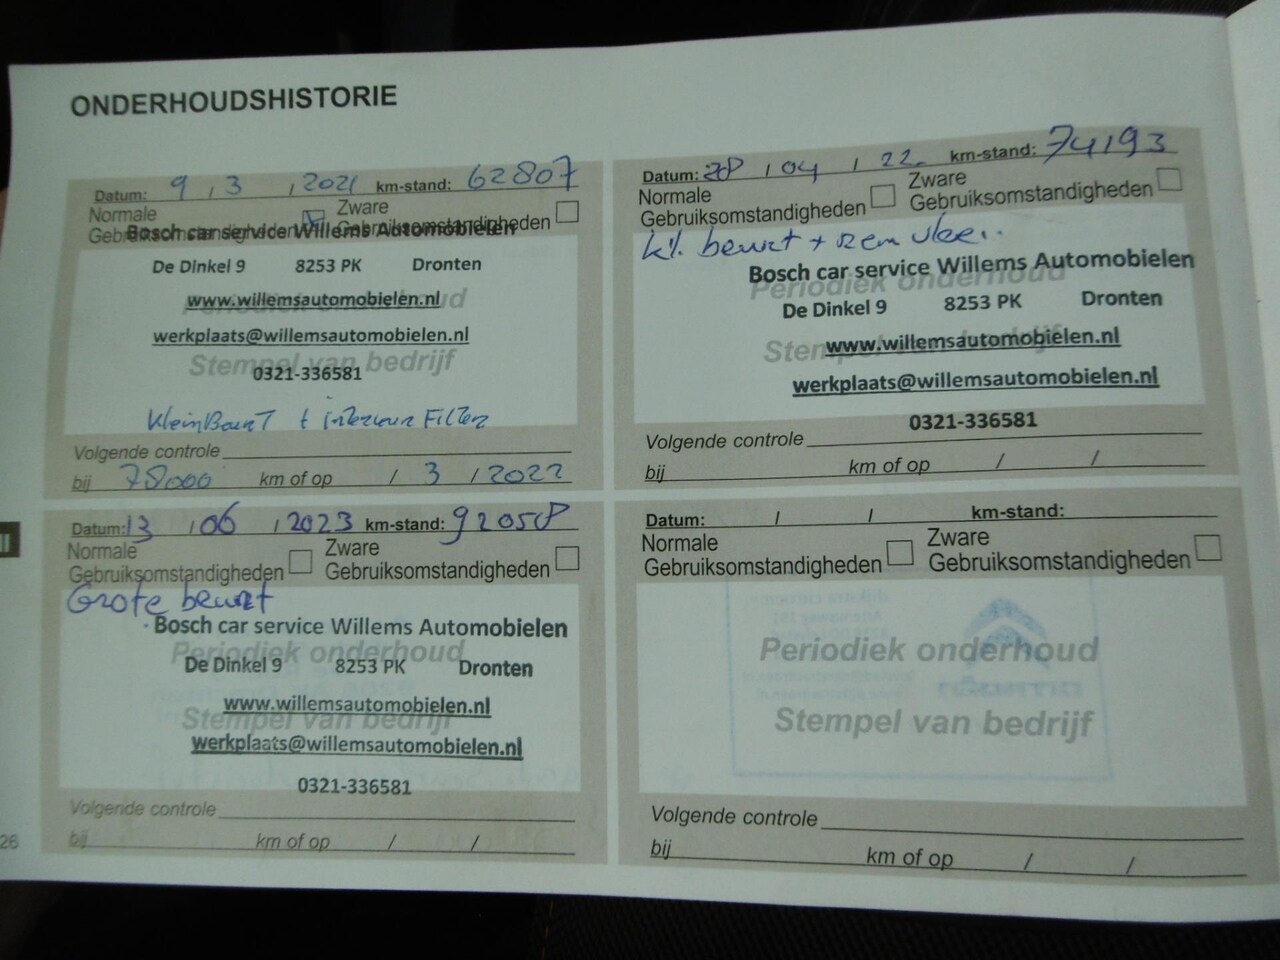 ONDERHOUDSHISTORIE
Datum: 9 / 3 / 2021 km-stand: 62807
Normale Gebruiksomstandigheden
Zware Gebruiksomstandigheden
Bosch car service Willems Automobielen
De Dinkel 9 8253 PK Dronten
www.willemsautomobielen.nl
Periodiek onderhoud
werkplaats@willemsautomobielen.nl
Stempel van bedrijf
0321-336581
Klein Beurt + interieur Filter
Volgende controle
bij 78000 km of op / 3 / 2022
Datum: 28 / 04 / 22 km-stand: 74193
Normale
Gebruiksomstandigheden
Zware
Gebruiksomstandigheden
kl. beurt + rem vloei..
Bosch car service Willems Automobielen
Periodiek onderhoud
De Dinkel 9 8253 PK Dronten
www.willemsautomobielen.nl
Stempel van bedrijf
werkplaats@willemsautomobielen.nl
0321-336581
Volgende controle
bij km of op / /
Datum: 13 / 06 / 2023 km-stand: 92058
Normale
Gebruiksomstandigheden
Zware
Gebruiksomstandigheden
Grote beurt
Bosch car service Willems Automobielen
Periodiek onderhoud
De Dinkel 9 8253 PK Dronten
www.willemsautomobielen.nl
Stempel van bedrijf
werkplaats@willemsautomobielen.nl
0321-336581
Volgende controle
bij km of op / /
Datum: / / km-stand:
Normale
Gebruiksomstandigheden
Zware
Gebruiksomstandigheden
Periodiek onderhoud
Stempel van bedrijf
Volgende controle
bij km of op / /
26